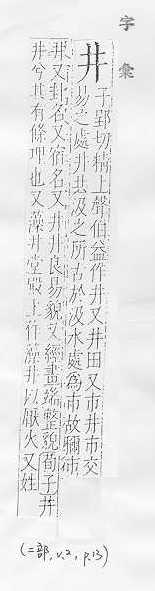 字彙
井
子郢切精上聲伯益作井又井田又市井市交
易之處井共汲之所古於汲水處為市故稱市
井又卦名又宿名又井井良易貌又經畫端整貌荀子井
井兮其有條理也又藻井堂殿上作藻井以厭火又姓
(二部, v.2, p.13)